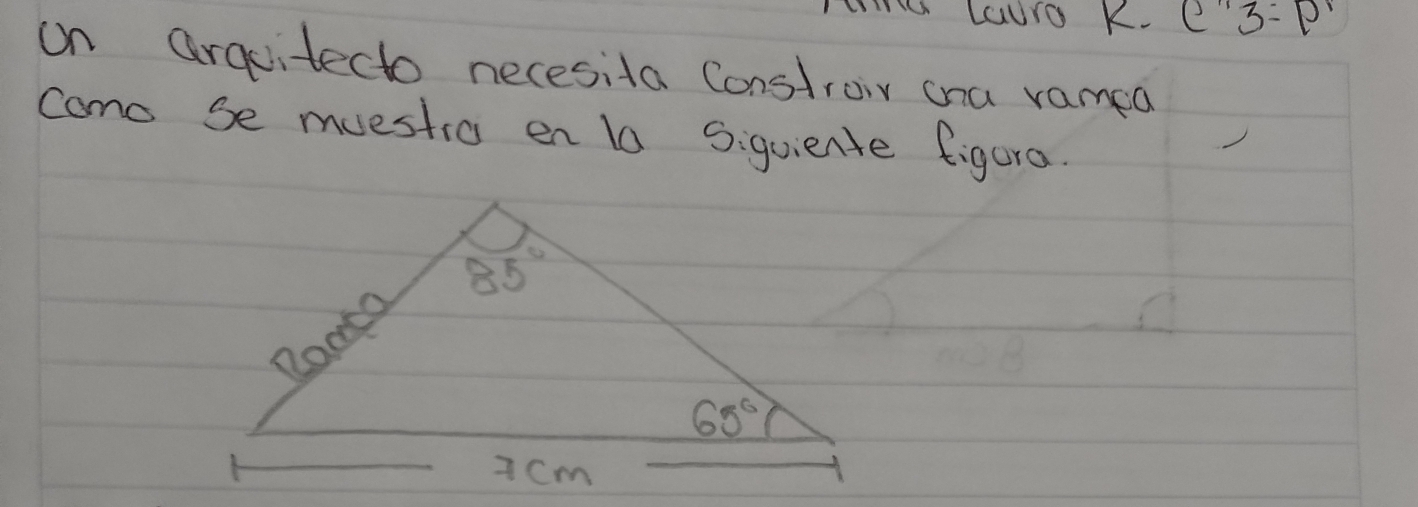 Laura R. C"3=P"
Un arquitecto necesita Construir una rampa
Como Se muestra en la Siguiente figura.
85°
Rampa
65°
7cm